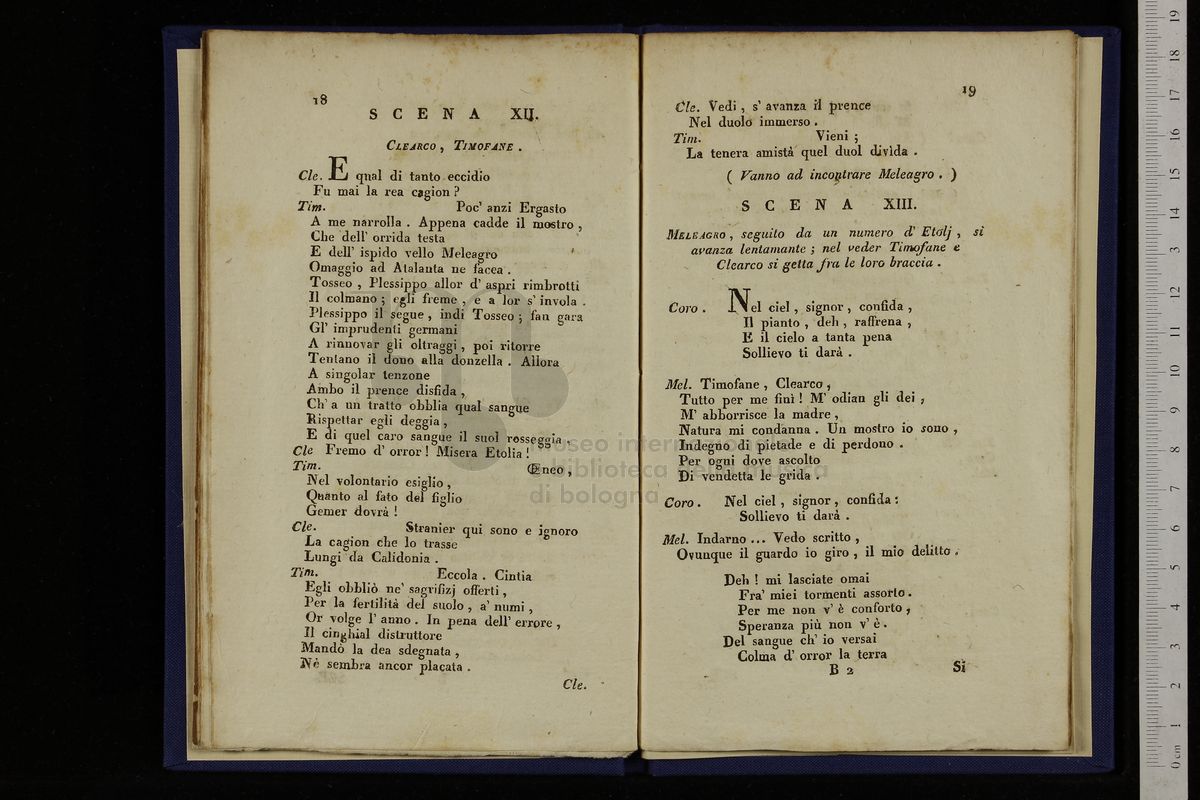 18
SCENA XII.
CLEARCO, TIMOFANE.
Cle. E qual di tanto eccidio
Fu mai la rea cagion?
Tim. Poc' anzi Ergasto
A me narrolla. Appena cadde il mostro,
Che dell' orrida testa
E dell' ispido vello Meleagro
Omaggio ad Atalanta ne facea.
Tosseo, Plessippo allor d' aspri rimbrotti
Il colmano; egli freme, e a lor s' invola.
Plessippo il segue, indi Tosseo; fan gara
Gl' imprudenti germani
A rinnovar gli oltraggi, poi ritorre
Tentano il dono alla donzella. Allora
A singolar tenzone
Ambo il prence disfida,
Ch' a un tratto obblia qual sangue
Rispettar egli deggia,
E di quel caro sangue il suol rosseggia.
Cle Fremo d' orror! Misera Etolia!
Tim. Œneo,
Nel volontario esiglio,
Quanto al fato del figlio
Gemer dovrà!
Cle. Stranier qui sono e ignoro
La cagion che lo trasse
Lungi da Calidonia.
Tim. Eccola. Cintia
Egli obbliò ne' sagrifizj offerti,
Per la fertilità del suolo, a' numi,
Or volge l' anno. In pena dell' errore,
Il cinghial distruttore
Mandò la dea sdegnata,
Nè sembra ancor placata.
Cle.
19
Cle. Vedi, s' avanza il prence
Nel duolo immerso.
Tim. Vieni;
La tenera amistà quel duol divida.
( Vanno ad incontrare Meleagro. )
SCENA XIII.
MELEAGRO, seguito da un numero d' Etolj, si
avanza lentamante; nel veder Timofane e
Clearco si getta fra le loro braccia.
Coro. Nel ciel, signor, confida,
Il pianto, deh, raffrena,
E il cielo a tanta pena
Sollievo ti darà.
Mel. Timofane, Clearco,
Tutto per me finì! M' odian gli dei,
M' abborrisce la madre,
Natura mi condanna. Un mostro io sono,
Indegno di pietade e di perdono.
Per ogni dove ascolto
Di vendetta le grida.
Coro. Nel ciel, signor, confida:
Sollievo ti darà.
Mel. Indarno... Vedo scritto,
Ovunque il guardo io giro, il mio delitto.
Deh! mi lasciate omai
Fra' miei tormenti assorto.
Per me non v' è conforto,
Speranza più non v' è.
Del sangue ch' io versai
Colma d' orror la terra
B 2
Si
museo internazionale
biblioteca della musica
di bologna
0 cm 1 2 3 4 5 6 7 8 9 10 11 12 13 14 15 16 17 18 19